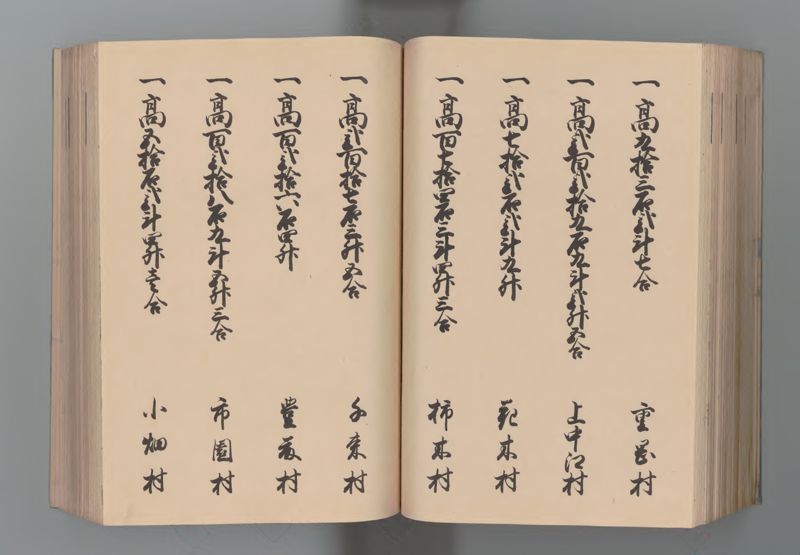 一高九拾三石弐斗七合 重岡村
一高弐百弐拾九石九斗弐升五合 上中江村
一高七拾弐石弐斗九升 木村
一高百七拾四石三斗四升三合 柿木村
一高弐百拾七石三升五合 千束村
一高百弐拾六石四升 豊村
一高百弐拾八石九斗五升三合 市園村
一高五拾石弐斗四升壱合 小畑村